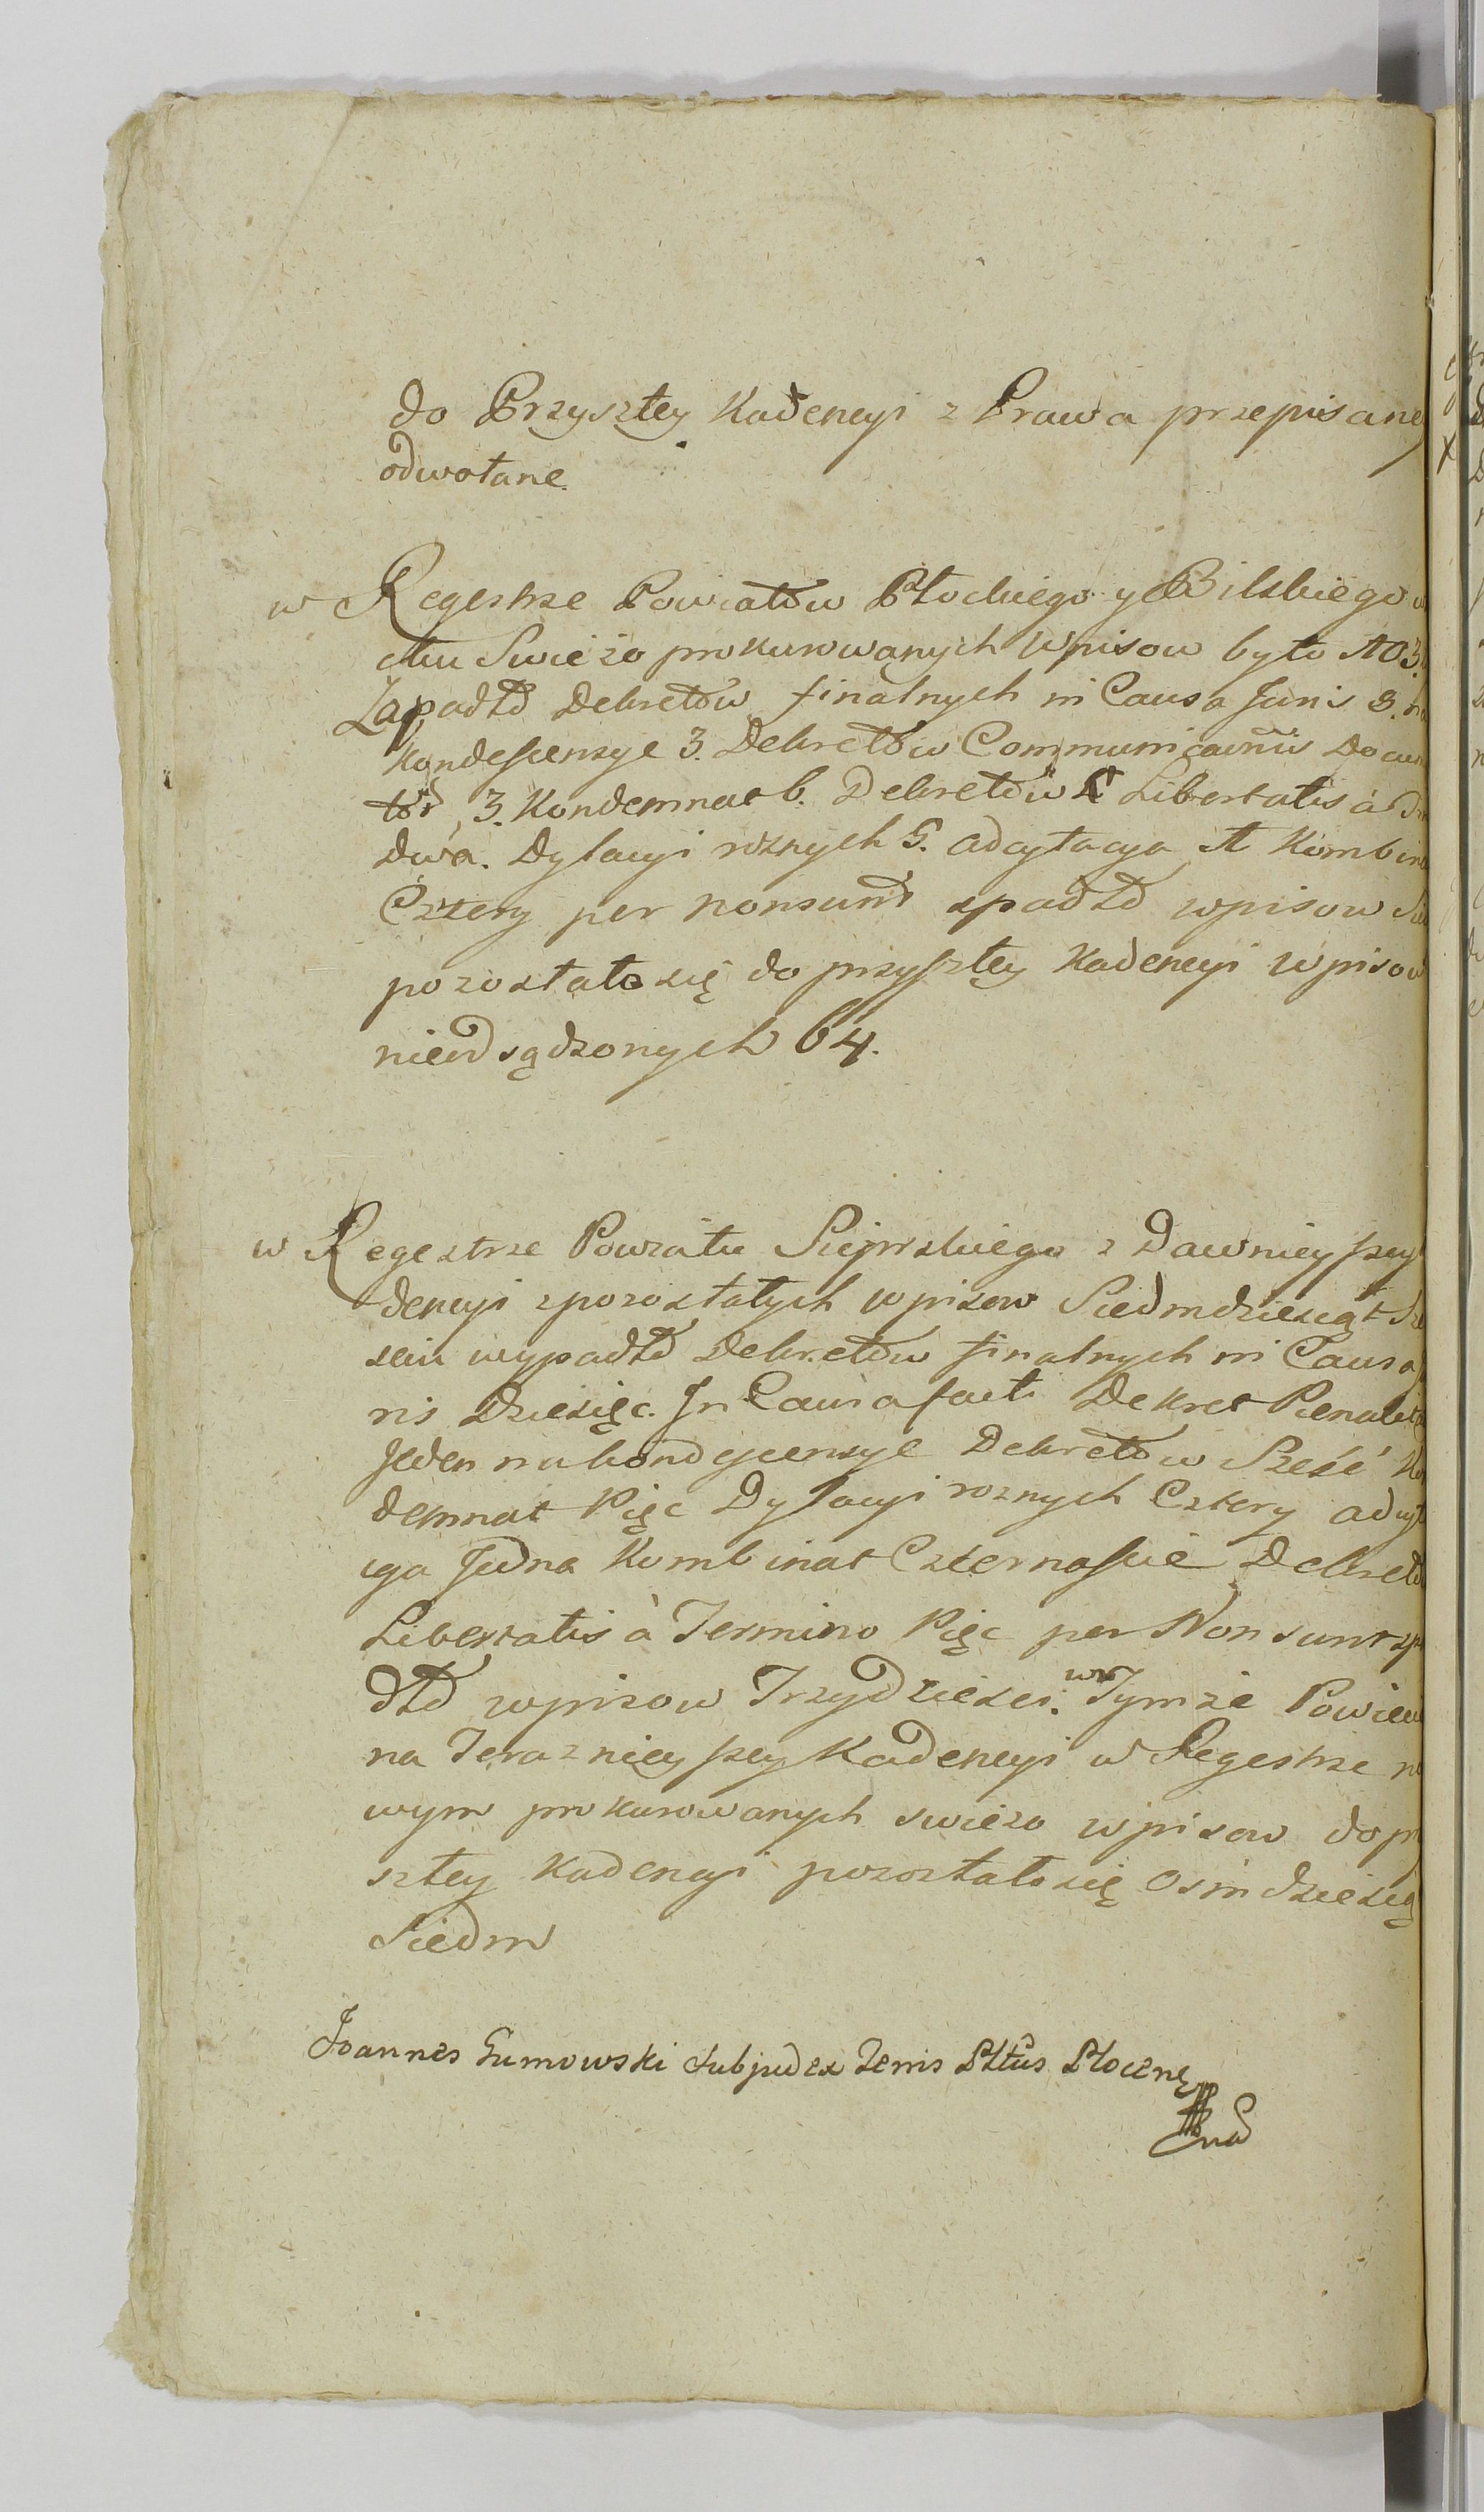 do Przyszłey Kadencyi z Prawa przepisaney
odwołane.
w Regestrze Powiatów Płockiego y Bilskiego
chu Swiezo prokurowanych Wpisow było 103.
Zapadło Dekretow finalnych in Causa Juris 8.
Kondescensye 3. Dekretow Communicationis Docum
tor 3. Kondemnat 6. Dekretow Libertatis à
dwa. Dylacyi roznych 5. adcytacya 1 Kombin
Cztery per nonsunt spadło wpisow
pozostało się do przyszłey Kadencyi Wpisow
nieodsądzonych 64.
w Regestrze Powiatu Sieprskiego z Dawnieyszey
dencyi zpozostałych wpisow Siedmdziesiąt
sciu wypadło Dekretow finalnych in Causa
ris Dziesięc. In Causa facti Dekret Pienalis
Jeden na kondescensye Dekretow Sześć
demnat Pięc Dylacyi roznych Cztery adcyt
cya Jedna Kombinat Czternascie Dekretow
Libertatis à Termino Pięc per Non sunt spa
dło wpisow Trzydziesci. w Tymze Powiecie
na Teraznieyszey Kadencyi w Regestrze no
wym prokurowanych swiezo wpisow do prz
szłey Kadencyi pozostało się Osmdziesiąt
Siedm
Joannes Gumowski Subjudex Terris Pltus Plocens